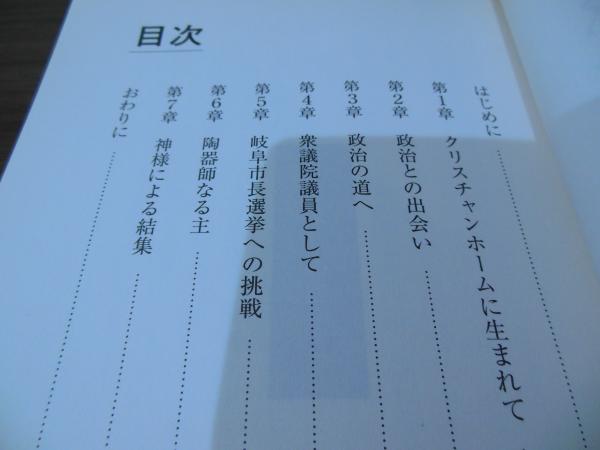 目次
はじめに
第1章 クリスチャンホームに生まれて
第2章 政治との出会い
第3章 政治の道へ
第4章 衆議院議員として
第5章 岐阜市長選挙への挑戦
第6章 陶器師なる主
第7章 神様による結集
おわりに